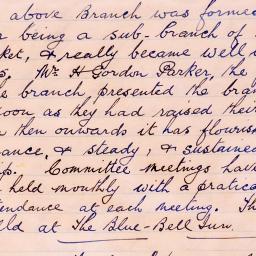 above Branch was formed
being a sub-branch of
ket, & really became well
Mr H Gordon Parker, the
e branch presented the bran
soon as they had raised their
then onwards it has flouris
ance, & steady, & sustained
p. Committee meetings have
held monthly with a pratica
tendance at each meeting. Th
eld at The Blue-Bell Inn.